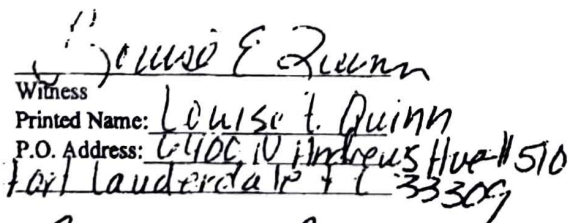 Louise E Quinn
Witness
Printed Name: Louise E. Quinn
P.O. Address: 6400 N Andrews Ave # 510
Fort Lauderdale FL 33309